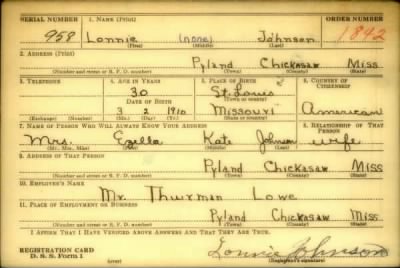 SERIAL NUMBER 1. NAME (Print) ORDER NUMBER
958 Lonnie (none) Johnson 1842
(First) (Middle) (Last)
2. ADDRESS (Print)
Pyland Chickasaw Miss
(Number and street or R. F. D. number) (Town) (County) (State)
3. TELEPHONE 4. AGE IN YEARS 5. PLACE OF BIRTH 6. COUNTRY OF CITIZENSHIP
30 St. Louis
DATE OF BIRTH (Town or county)
3 2 1910 Missouri American
(Exchange) (Number) (Mo.) (Day) (Yr.) (State or country)
7. NAME OF PERSON WHO WILL ALWAYS KNOW YOUR ADDRESS 8. RELATIONSHIP OF THAT PERSON
Mrs. Ezella Kate Johnson wife
(Mr., Mrs., Miss) (First) (Middle) (Last)
9. ADDRESS OF THAT PERSON
Pyland Chickasaw Miss
(Number and street or R. F. D. number) (Town) (County) (State)
10. EMPLOYER'S NAME
Mr. Thurman Lowe
11. PLACE OF EMPLOYMENT OR BUSINESS
Pyland Chickasaw Miss
(Number and street or R. F. D. number) (Town) (County) (State)
I AFFIRM THAT I HAVE VERIFIED ABOVE ANSWERS AND THAT THEY ARE TRUE.
REGISTRATION CARD
D. S. S. Form 1 Lonnie Johnson
(over) (Registrant's signature)